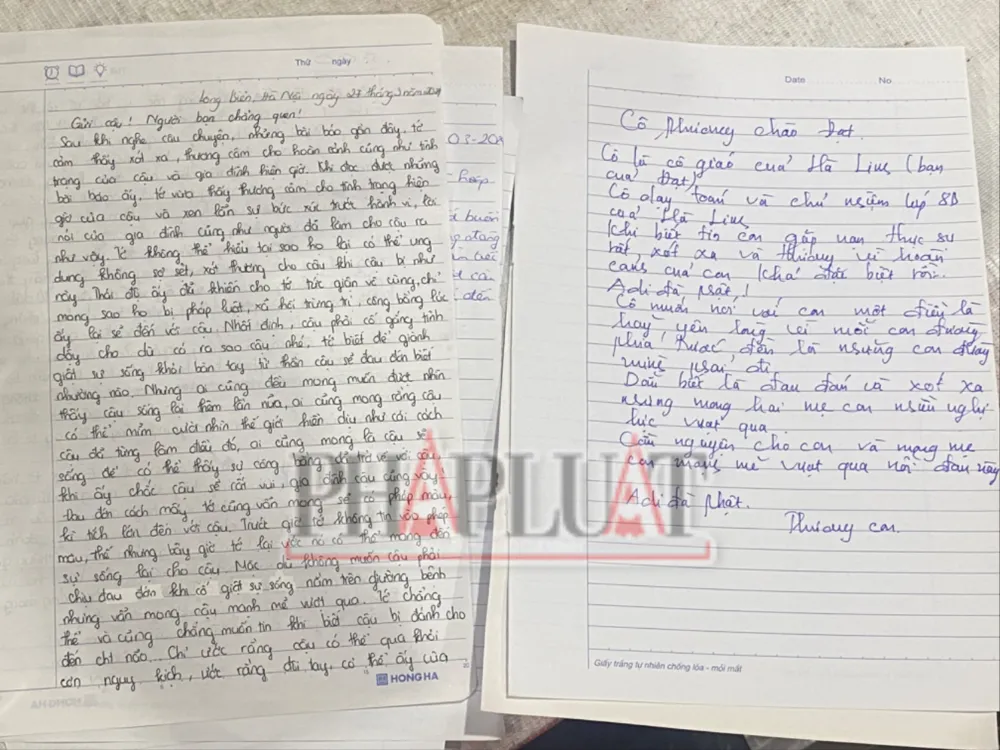 Thứ ngày
Long Biên, Hà Nội ngày 27 tháng 3 năm 2024
Gửi cậu! Người bạn chẳng quen!
Sau khi nghe câu chuyện, những bài báo gần đây, tớ
cảm thấy xót xa, thương cảm cho hoàn cảnh cũng như tình
trạng của cậu và gia đình hiện giờ. Khi đọc được những
bài báo ấy, tớ vừa thấy thương cảm cho tình trạng hiện
giờ của cậu và xen lẫn sự bức xúc trước hành vi, lời
nói của gia đình cũng như người đã làm cho cậu ra
như vậy. Tớ không thể hiểu tại sao họ lại có thể ung
dung không sợ sệt, xót thương cho cậu khi cậu bị như
này. Thái độ ấy đã khiến cho tớ tức giận vô cùng, chỉ
mong sao họ bị pháp luật, xã hội trừng trị, công bằng lúc
ấy lại sẽ đến với cậu. Nhất định, cậu phải cố gắng tỉnh
dậy cho dù có ra sao cậu nhé. Tớ biết để giành
giật sự sống khỏi bàn tay tử thần cậu sẽ đau đớn biết
nhường nào. Nhưng ai cũng đều mong muốn được nhìn
thấy cậu sống lại thêm lần nữa, ai cũng mong rằng cậu
có thể mỉm cười nhìn thế giới hiền dịu như cái cách
cậu đã từng làm điều đó, ai cũng mong là cậu sẽ
sống để có thể thấy sự công bằng đã trở về với cậu,
khi ấy chắc cậu sẽ rất vui, gia đình cậu cũng vậy.
Dau đến cách mấy, tớ cũng vẫn mong sẽ có phép màu,
kì tích lớn đến với cậu. Trước giờ tớ không tin vào phép
màu, thế nhưng bây giờ tớ lại ước nó có thể mang đến
sự sống lại cho cậu. Mặc dù không muốn cậu phải
chịu đau đớn khi cố giật sự sống nằm trên giường bệnh
nhưng vẫn mong cậu mạnh mẽ vượt qua. Tớ chẳng
thể và cũng chẳng muốn tin khi biết cậu bị đánh cho
đến chết não... Chỉ ước rằng cậu có thể qua khỏi
cơn nguy kịch, ước rằng đôi tay, cơ thể ấy của
HONG HA
Date No
Cô Phương chào Đạt.
Cô là cô giáo của Hà Linh (bạn
của Đạt)
Cô dạy toán và chủ nhiệm lớp 8D
của Hà Linh
Khi biết tin con gặp nạn thực sự
rất xót xa và thương vì hoàn
cảnh của con khá đặc biệt rồi.
Adi đà phật,!
Cô muốn nói với con một điều là
hãy yên lòng vì mỗi con đường
phía trước, đến là những con đường
mình phải đi
Dẫu biết là đau đớn và xót xa
nhưng mong hai mẹ con nhiều nghị
lực vượt qua.
Cầu nguyện cho con và mong mẹ
con mạnh mẽ vượt qua nỗi đau này
Adi đà phật.
Phương con.
Giấy trắng tự nhiên chống lóa - mỏi mắt
PHÁP LUẬT